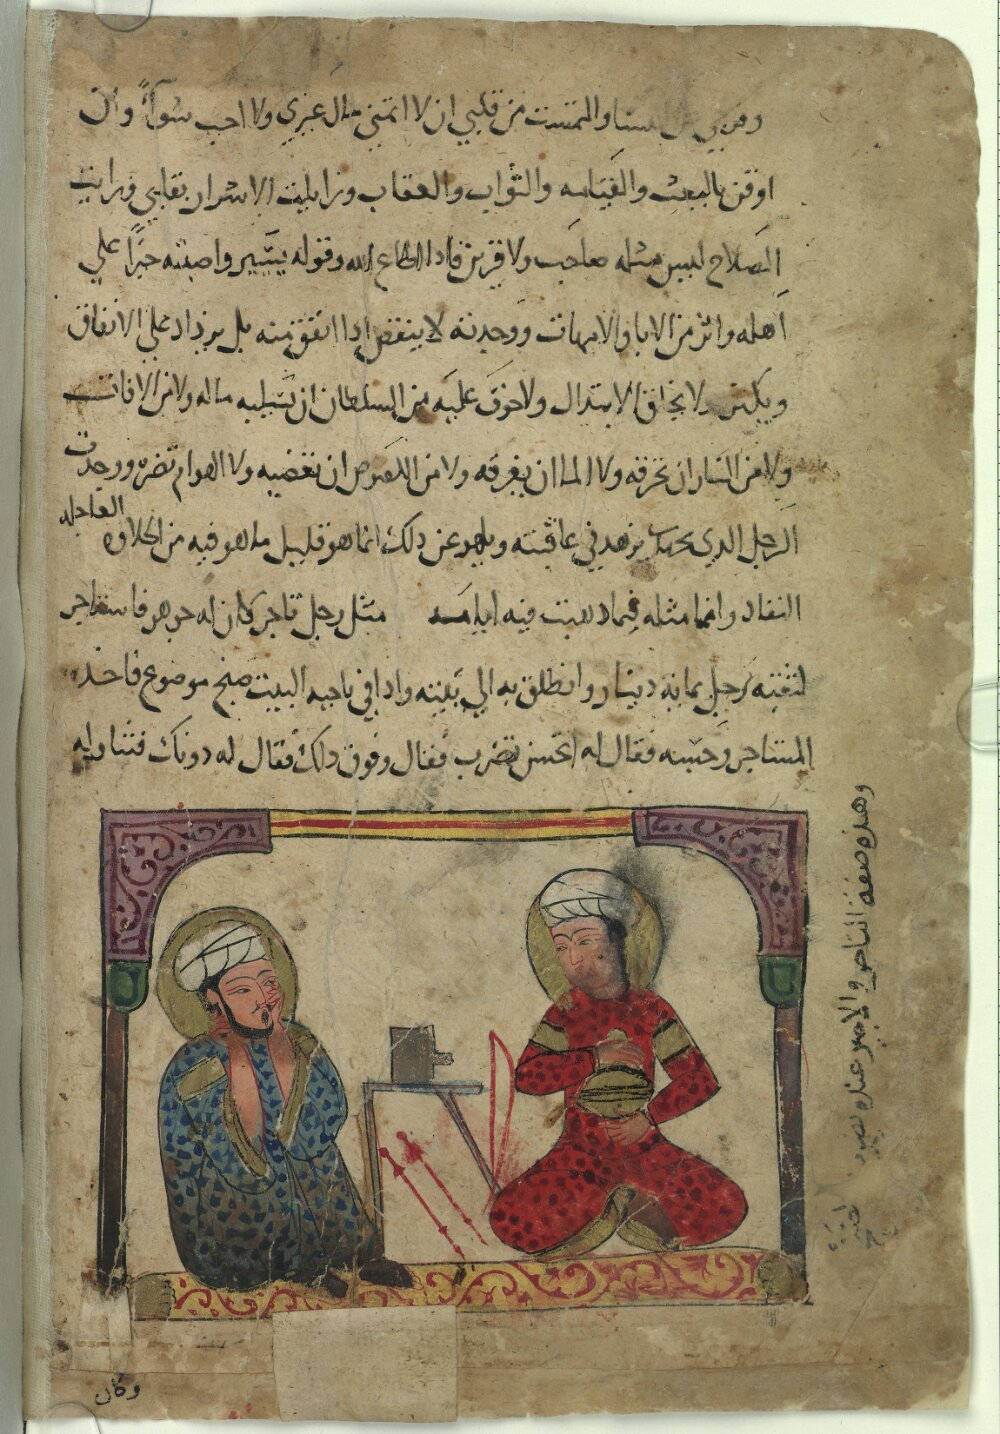 والتمست من قلبي ان لا اتمنى مال غيري ولا احب سوآً وان
اوقن بالبعث والقيامه والثواب والعقاب وزايلت الاشرار بقلبي ورايت
الصلاح ليس مثله صاحب ولا قرين فادا اطاع الله وقوله يتسير واصبته خيرًا علي
اهله وابر من الابا والامهات ووجدته لا ينقص ادا انفق منه بل يزداد علي الانفاق
ويكثر ولا يخاف الابتدال ولا خوف عليه من السلطان ان يسلبه ماله ولا من الافات
ولا من النار ان تحرقه ولا الما ان يغرقه ولا من اللصوص ان تغصبه ولا الهوام تضره ووجدت
الرجل الدي يزهد في عاقبته ويلهو عن دلك انما هو قليل ما هو فيه من الحلاوه العاجله
النفاد وانما مثله فيما دهبت فيه ايامه مثل رجل تاجر كان له جوهر فاستاجر
لثقبه رجل بمايه دينار وانطلق به الي بيته وادا في ناحيه البيت صنج موضوع فاخده
المستاجر وحبسه فقال له اتحسن تضرب فقال وفوق دلك فقال له دونك فتناوله
وهذه صفة التاجر والاجير عنده
وكان